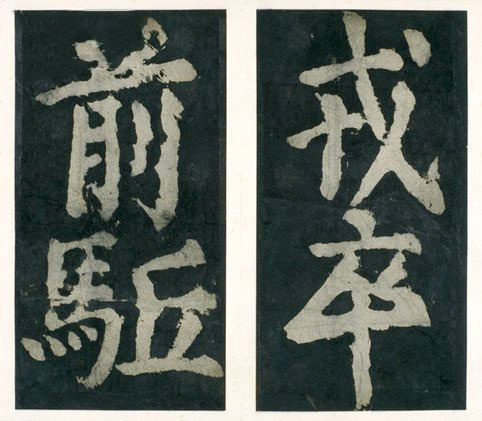 戎卒
前駈